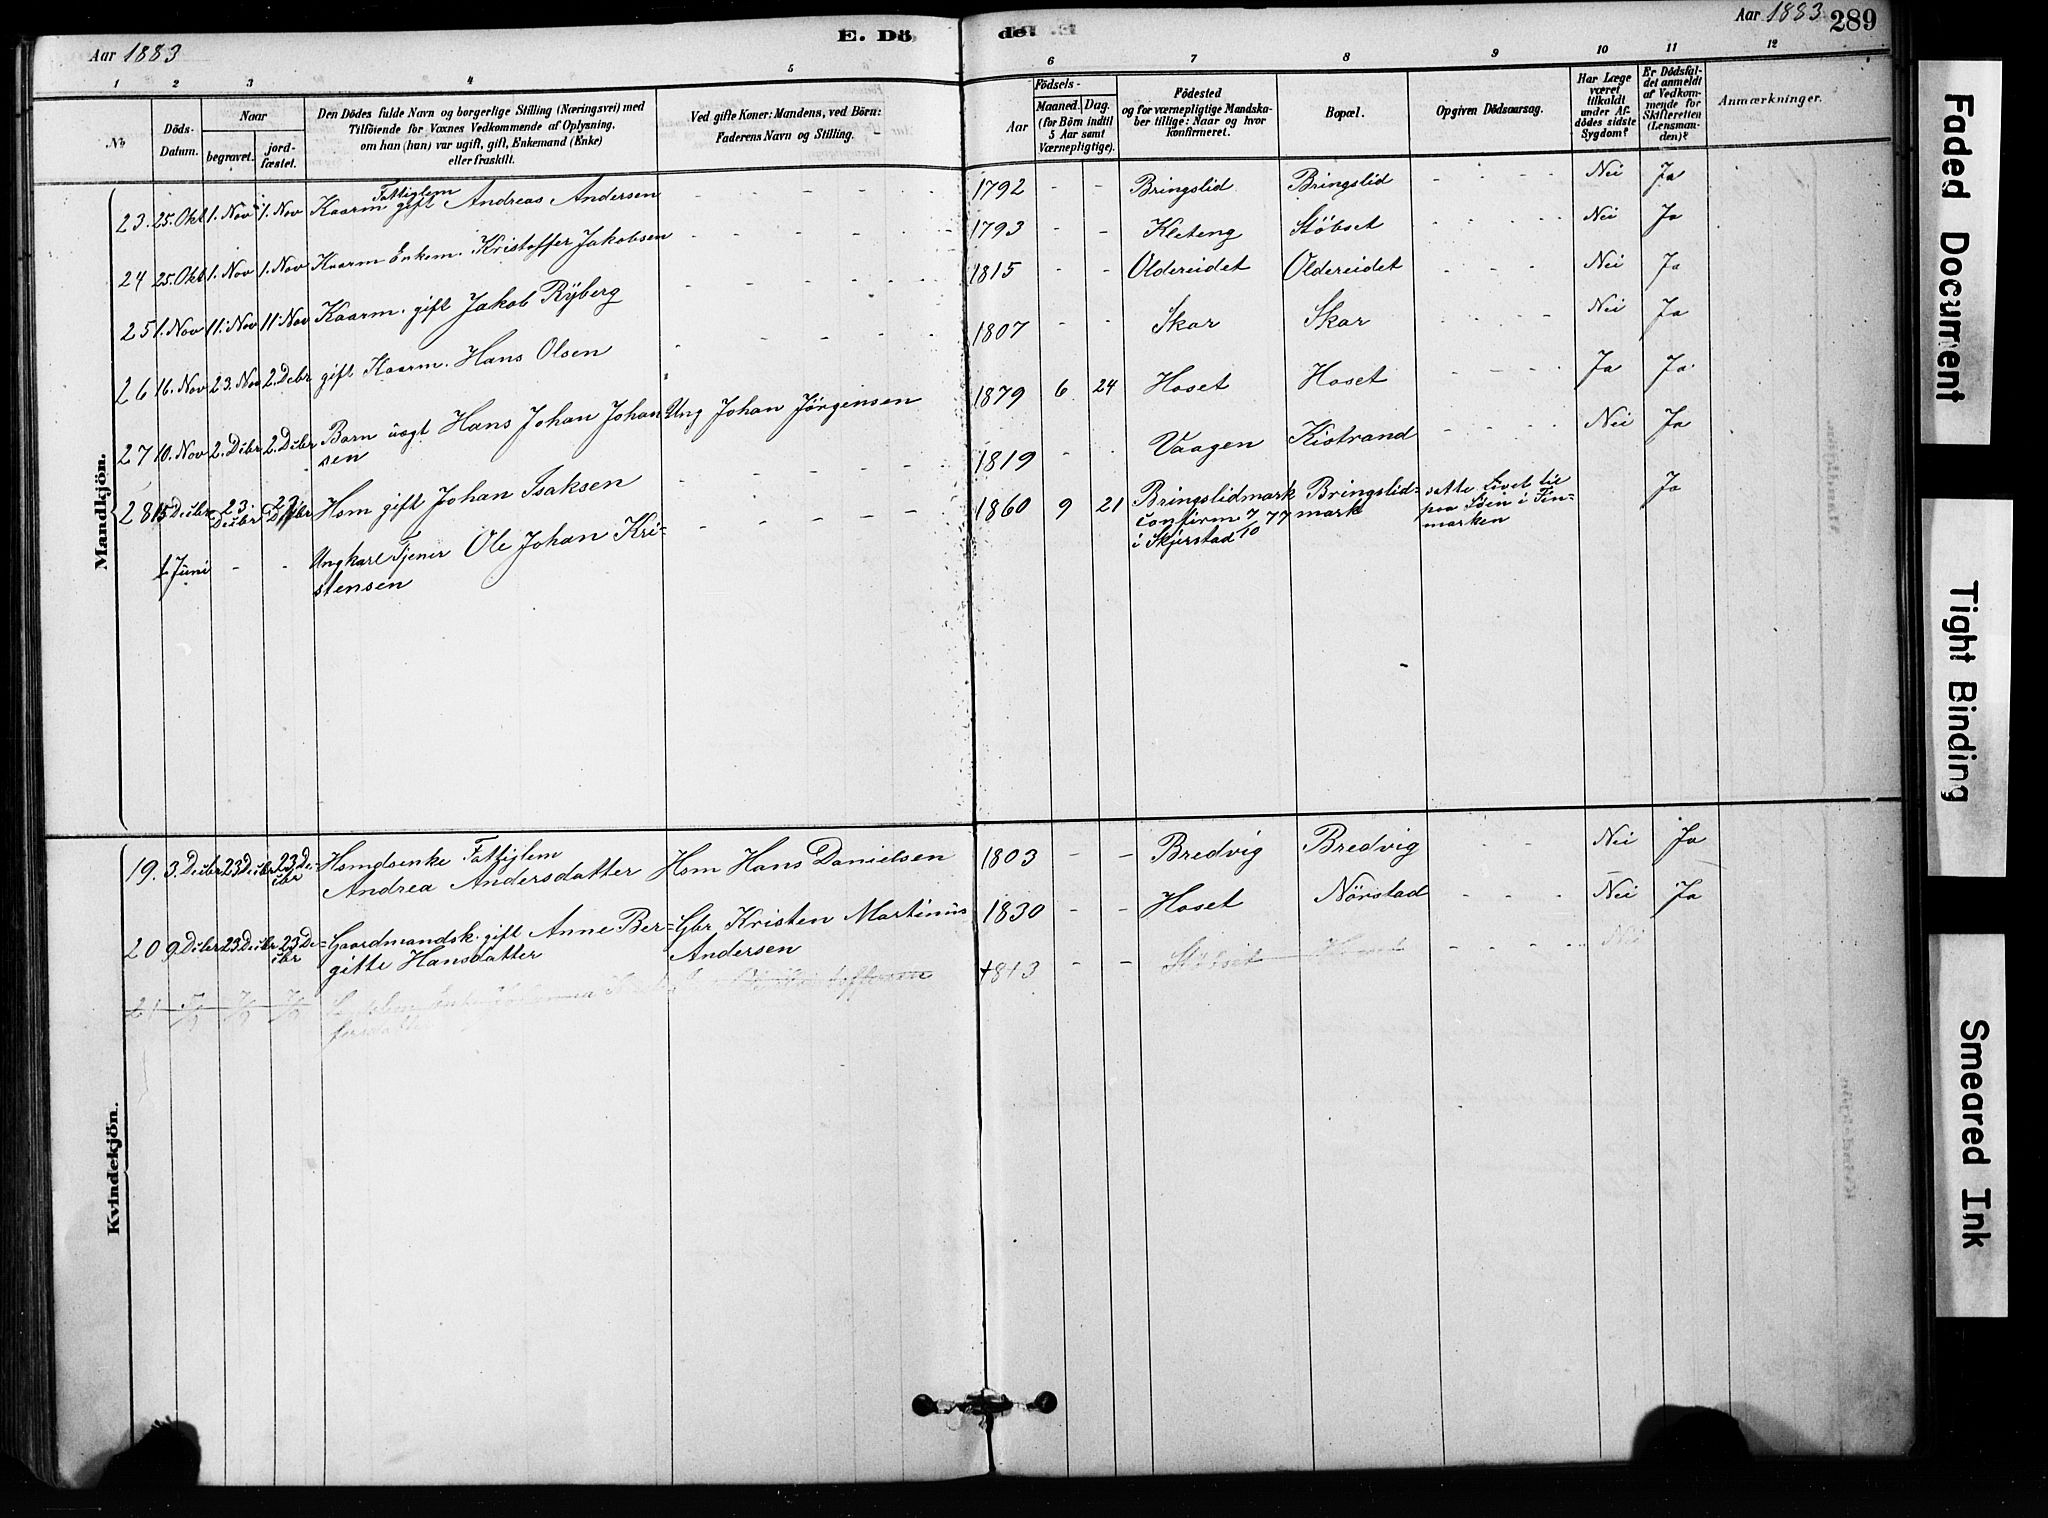 Aar 1883
E. Döde.
Aar 1883
289
1 2 3 4 5 6 7 8 9 10 11 12
No
Döds-Datum.
Naar
begravet.
jordfæstet.
Den Dödes fulde Navn og borgerlige Stilling (Næringsvei) med
Tilföiende for Voxnes Vedkommende af Oplysning,
om han (hun) var ugift, gift, Enkemand (Enke)
eller fraskilt.
Ved gifte Koner: Mandens, ved Börn:
Faderens Navn og Stilling.
Födsels-
Aar
Maaned. Dag.
(for Börn indtil
5 Aar samt
Værnepligtige).
Födested
og for værnepligtige Mandskaber tillige: Naar og hvor
konfirmeret.
Bopæl.
Opgiven Dödsaarsag.
Har Læge
været
tilkaldt
under Afdödes sidste
Sygdom?
Er Dödsfaldet anmeldt
af Vedkommende for
Skifteretten
(Lensmanden)?
Anmærkninger.
Mandkjön.
23. 25. Okt 1. Nov 1. Nov Kaarm Fattiglem gift Andreas Andersen - - - - 1792 - - Bringslid Bringslid - - - - Nei Ja
24 25. Okt 1. Nov 1. Nov Kaarm Enkem. Kristoffer Jakobsen - - - - 1793 - - Kleteng Stöbset - - - - Nei Ja
25 1. Nov 11. Nov 11. Nov Kaarm. gift Jakob Ryberg - - - - 1815 - - Oldereidet Oldereidet - - - Nei Ja
26 16. Nov 23. Nov 2. Debr gift Kaarm. Hans Olsen - - - - 1807 - - Skar Skar - - - - Nei Ja
27 10. Nov 2. Debr 2. Debr Barn uægt Hans Johan Johan Ung Johan Jörgensen 1879 6 24 Hoset Hoset - - - - Ja Ja
sen
28 15 Decbr 23. Decbr 23 Decbr Hsm gift Johan Isaksen - - - - 1819 - - Vaagen Kistrand - - - - Nei Ja
1. Juni - - Ungkarl Tjener Ole Johan Kri- - - - - 1860 9 21 Bringslidmark Bringslid- satte Livet til Ja
stensen confirm 7/10 77 mark paa Söen i Fin-
i Skjerstad marken
Kvindekjön.
19. 3. Decbr 23 Decbr 23 De- Hsmdsenke Fattiglem Hsm Hans Danielsen 1803 - - Bredvig Bredvig - - Nei Ja
cbr Andrea Andersdatter
20 9 Decbr 23 Decbr 23 De- Gaardmandsk. gift Anne Ber- Gbr Kristen Martinus 1830 - - Hoset Nörstad - - - Nei Ja
cbr gitte Hansdatter Andersen
21 1813 - - Stöbset - - - - Nei
Faded Document
Tight Binding
Smeared Ink